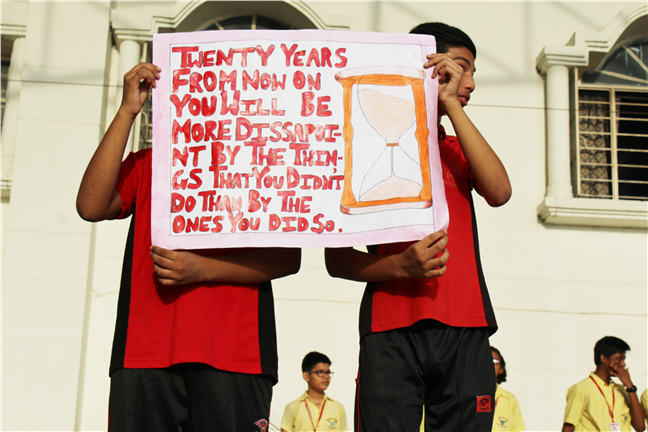 TWENTY YEARS
FROM NOW ON
YOU WILL BE
MORE DISSAPOI-
NT BY THE THIN-
GS THAT YOU DIDN'T
DO THAM BY THE
ONES YOU DID SO.